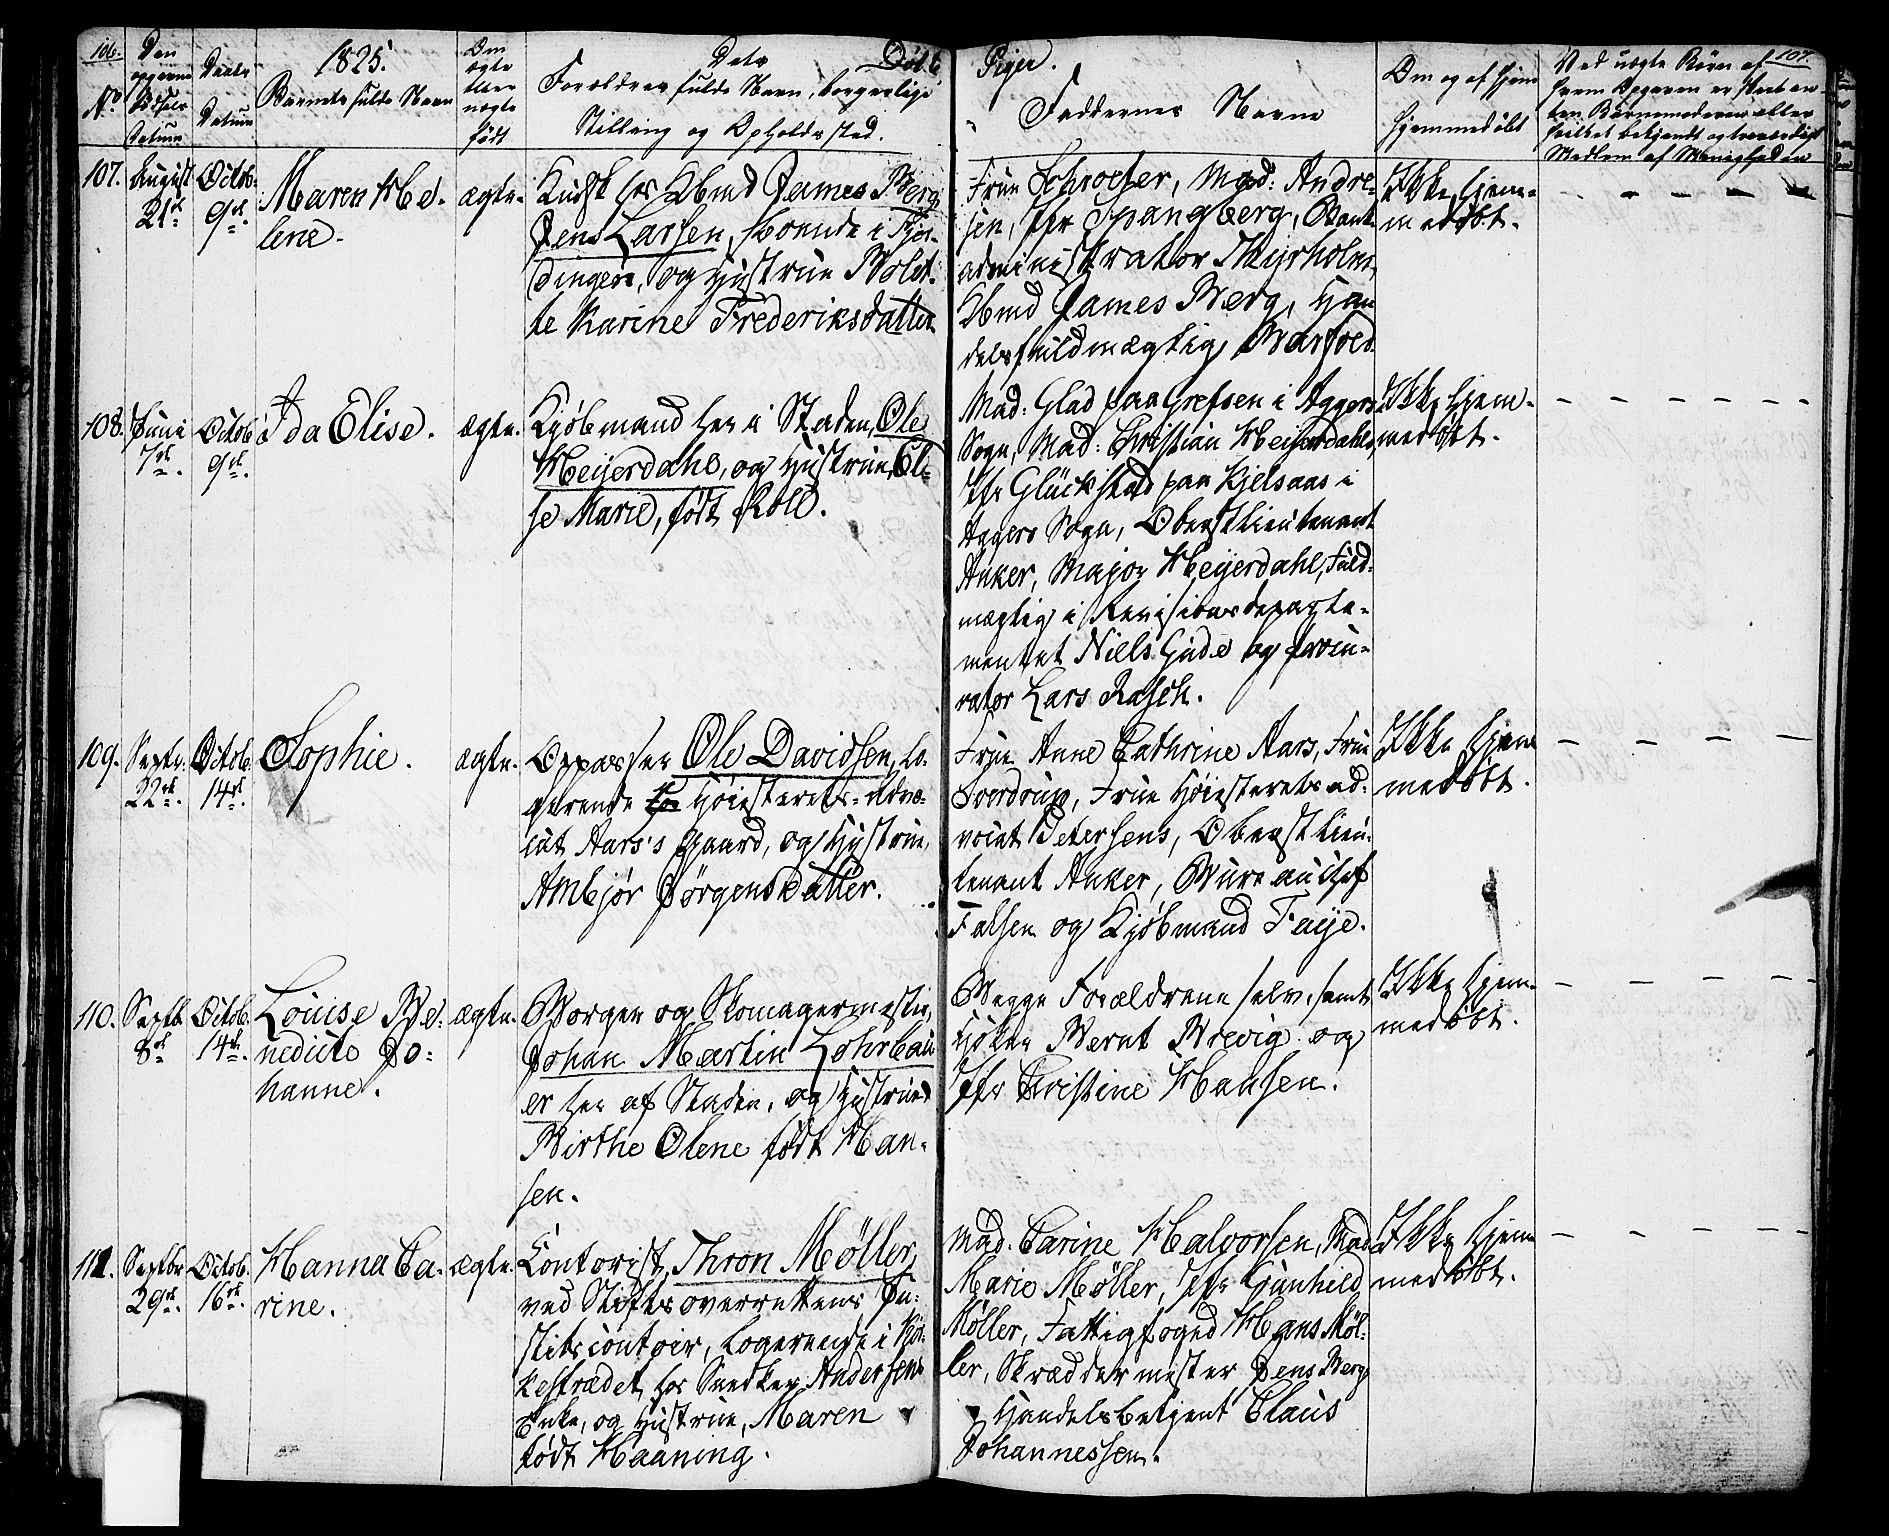 106.
Den
opgivne
Fødsels
Datum
Daabs
Datum
1825.
No
Barnets fulde Navn
Om
ægte
eller
uægte
født
Døbte
Forældres fulde Navn, borgerlige
Stilling og Opholdssted.
Piger.
Faddernes Navne
Om og af hjem
hjemmedøbt
107.
Ved uægte Børn af
hvem Opgaven er skeet en-
ten Barnemoderen eller
hvilket bekjendt og troværdigt
Medlem af Menigheden
107.
August
21de
Octob:
9de
Maren He-
lene.
ægte.
Kudsk hos Kbmd James Berg
Jens Larsen, boende i
og Hustrue Bolet-
te Karine Frederiksdatter
Frue Schrøeter, Mad: Andre-
sen, Jfr Spangberg, Bank-
administrator Thyrholm,
Kbmd James Berg, Han-
delsfuldmægtig Warfoed.
Ikke hjem-
medøbt.
108.
Juni
7de.
Octob
9de.
Ida Elise.
ægte.
Kjøbmand her i Staden, Ole
Heyerdahl, og Hustrue, El-
se Marie, født Roll.
Mad: Glad paa Grefsen i Aggers
Sogn, Mad: Christian Heyerdahl,
Jfr Glückstad paa Kjelsaas i
Aggers Sogn, Oberstlieutenant
Anker, Major Heyerdahl, Fuld-
mægtig i Revisionsdeparte-
mentet Niels Gude og Procu-
rator Lars Rasch.
Ikke hjem-
medøbt.
109.
Septr.
22de.
Octob.
14de.
Sophie.
ægte.
Oppasser Ole Davidsen, lo-
gerende Høiesterets-Advo-
cat Aars's Gaard, og Hustrue,
Ambjør Jørgensdatter.
Frue Anne Cathrine Aars, Frue
Sverdrup, Frue Høiesteretsad-
vocat Petersens, Oberstlieu-
tenant Anker, Bureauchef
Falsen og Kjøbmand Faye.
Ikke hjem
medøbt.
110.
Septb.
8de
Octob.
14de.
Louise Be-
nedicte Jo-
hanne.
ægte.
Borger og Skomagermester,
Johan Martin Lohrbau-
er her af Staden, og Hustrue
Birthe Olene født Han-
sen.
Begge Forældrene selv, samt
Høker Bernt Brevig og
Jfr Christine Hansen.
Ikke hjem-
medøbt.
111.
Septbr
29de.
Octob.
16de.
Hanna Ca-
rine.
ægte.
Contorist, Thron Møller,
ved Stiftsoverrettens Ju-
stitscontoir, logerende i Kir-
kestrædet hos Snedker Andersens
Enke, og Hustrue, Maren
født Haaning.
Mad. Carine Halvorsen, Mad
Marie Møller, Jfr Gunhild
Møller, Fattigfoged Hans Møl-
ler, Skræddermester Jens Berg
Handelsbetjent Claus
Johannessen.
Ikke hjem
medøbt.